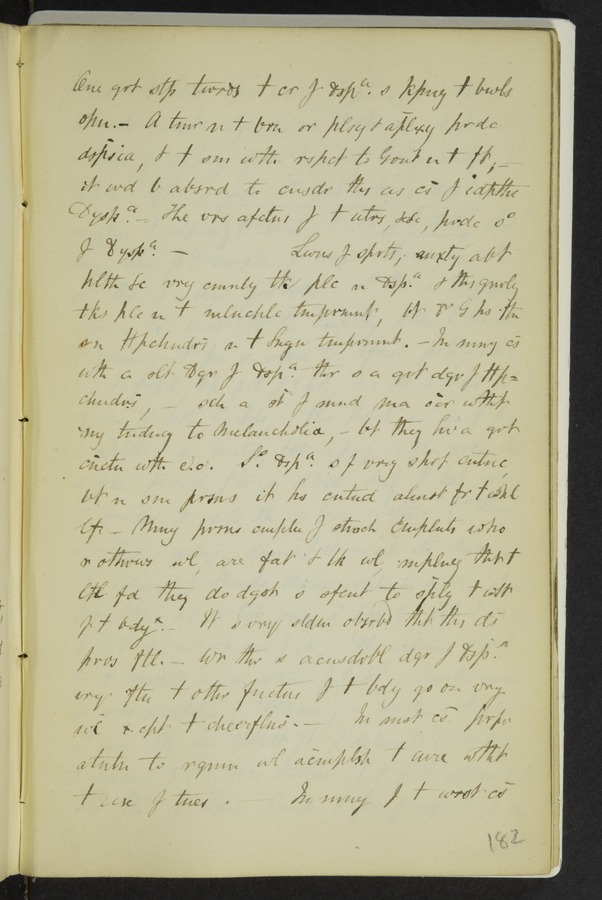 One grt stp twrds t cr J dspa. s kpng t bwls
opn. – A tmr n t brn or plsy & aplxy prdc
dspsia, & t sm wth rspct to Gout in t ft, –
it wd b absrd to cnsdr ths as cs J idpthc
Dyspa. – The vrs afctns J t utrs, &c, prdc so
J Dyspa. – Lwns J sprts, anxty abt
hlth &c vry cmnly tk plc n Dspa. & ths gnrly
tks plc n t mlnchlc tmprmnt, bt Dr G hs thm
sn Hpchndrs n t Sngn tmprmnt. – In mny cs
wth a slt Dgr J Dspa. thr s a grt dgr J Hp=
chndrs, – sch a st J mnd ma ocr wtht
any tndncy to Melancholia, – bt they hv a grt
cnctn wth e.o. So. dspa. s J vry shrt cntnc
bt n sm prsns it hs cntnd almst fr t whl
lf. – Mny prsns cmpln J stmch Cmplnts who
r othrws wl, are fat & lk wl, implyng tht t
ltl fd they do dgst s sfcnt to sply t wst
J t bdy. – It s vry sldm obsrvd tht ths ds
prvs ftl. – Whr thr s a cnsdrbl dgr J Dspa.
vry oftn t othr fnctns J t bdy go on vry
wl xcpt t cheerflns. – In most cs prpr
atntn to rgmn wl acmplsh t cure wtht
t use J mds. – In mny J t worst cs
182